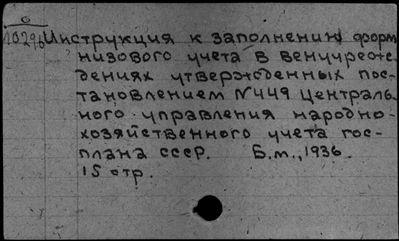 6
10296 Инструкция к заполнению форм
низового учета в венучреж-
дениях утвержденных пос-
тановлением №449 централь-
ного управления народно-
хозяйственного учета гос-
плана ссср. Б.м., 1936.
15 стр.